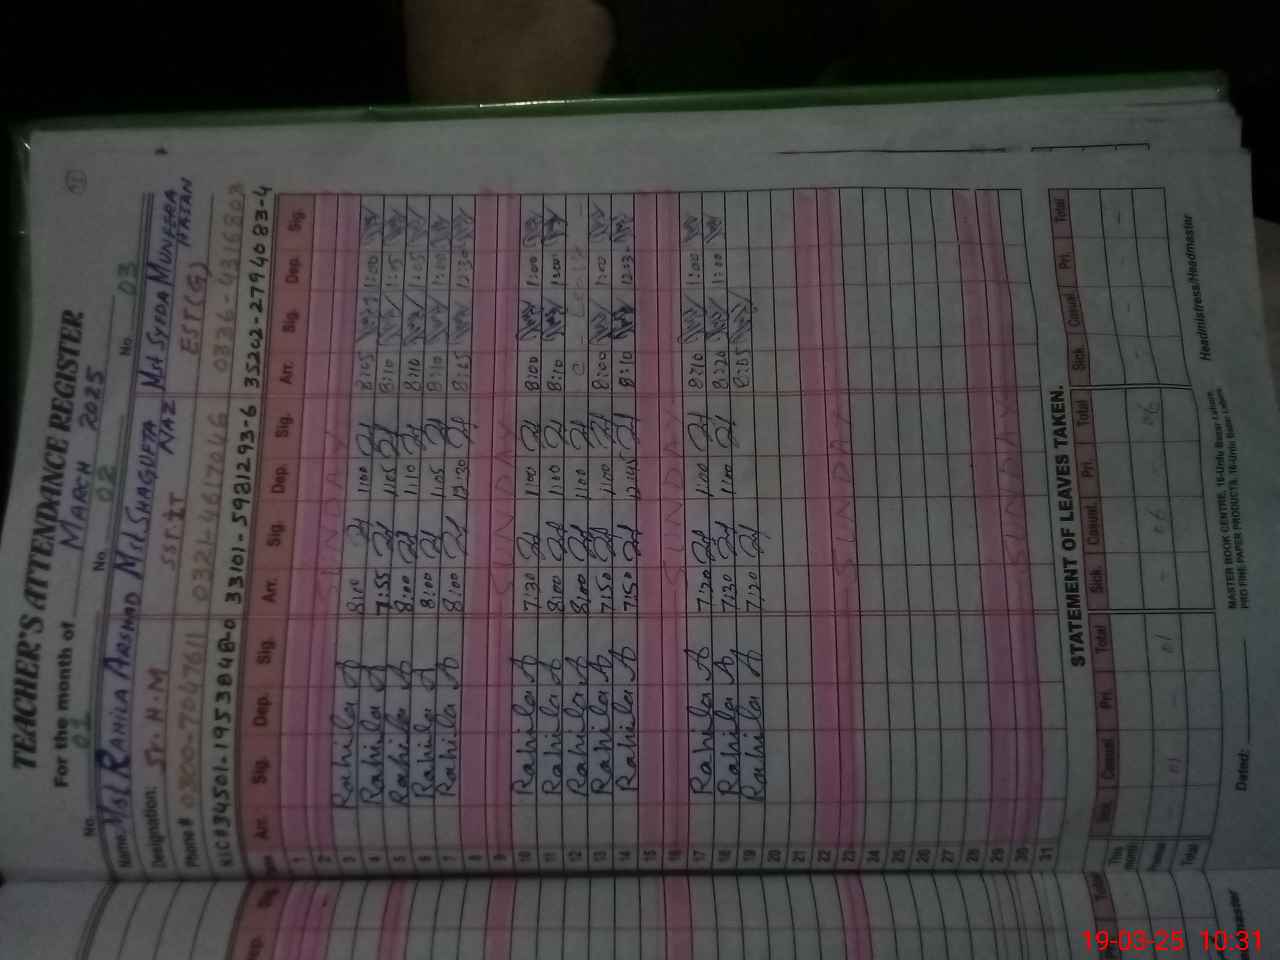 TEACHER'S ATTENDANCE REGISTER
For the month of MARCH 2025
No. 01 No. 02 No. 03
Name Mst RAHILA ARSHAD Mst SHAGUFTA NAZ Mst SYEDA MUNEERA
Designation: SST-IT EST(G)
Phone # 0300-7047611 0321-4617046 0336-4316803
NIC# 34501-1953848-0 33101-5981293-6 35202-2794083-4
Date Arr. Sig. Dep. Sig. Arr. Sig. Dep. Sig. Arr. Sig. Dep. Sig.
1
2 SUNDAY
3 Rahila A 8:10 1:00 8:05 1:00
4 Rahila A 7:55 1:05 8:10 1:05
5 Rahila A 8:00 1:10 8:10 1:05
6 Rahila A 8:00 1:05 8:10 1:00
7 Rahila A 8:00 12:30 8:05 12:30
8
9 SUNDAY
10 Rahila A 7:30 1:00 8:00 1:00
11 Rahila A 8:00 1:10 8:10 1:00
12 Rahila A 8:00 1:00 C - Leave -
13 Rahila A 7:50 1:00 8:00 1:00
14 Rahila A 7:50 12:45 8:10 12:30
15
16 SUNDAY
17 Rahila A 7:20 1:00 8:10 1:00
18 Rahila A 7:30 1:00 8:20 1:00
19 Rahila A 7:20 8:05
20
21
22
23 SUNDAY
24
25
26
27
28
29
30 SUNDAY
31
STATEMENT OF LEAVES TAKEN.
Sick Casual Pri. Total Sick. Casual. Pri. Total Sick Casual Pri. Total
This month - - -
01 01 - 06 06
Total
Dated:
MASTER BOOK CENTRE, 16-Urdu Bazar Lahore.
PRO FINE PAPER PRODUCTS, 16-Urdu Bazar Lahore.
Headmistress/Headmaster
19-03-25 10:31